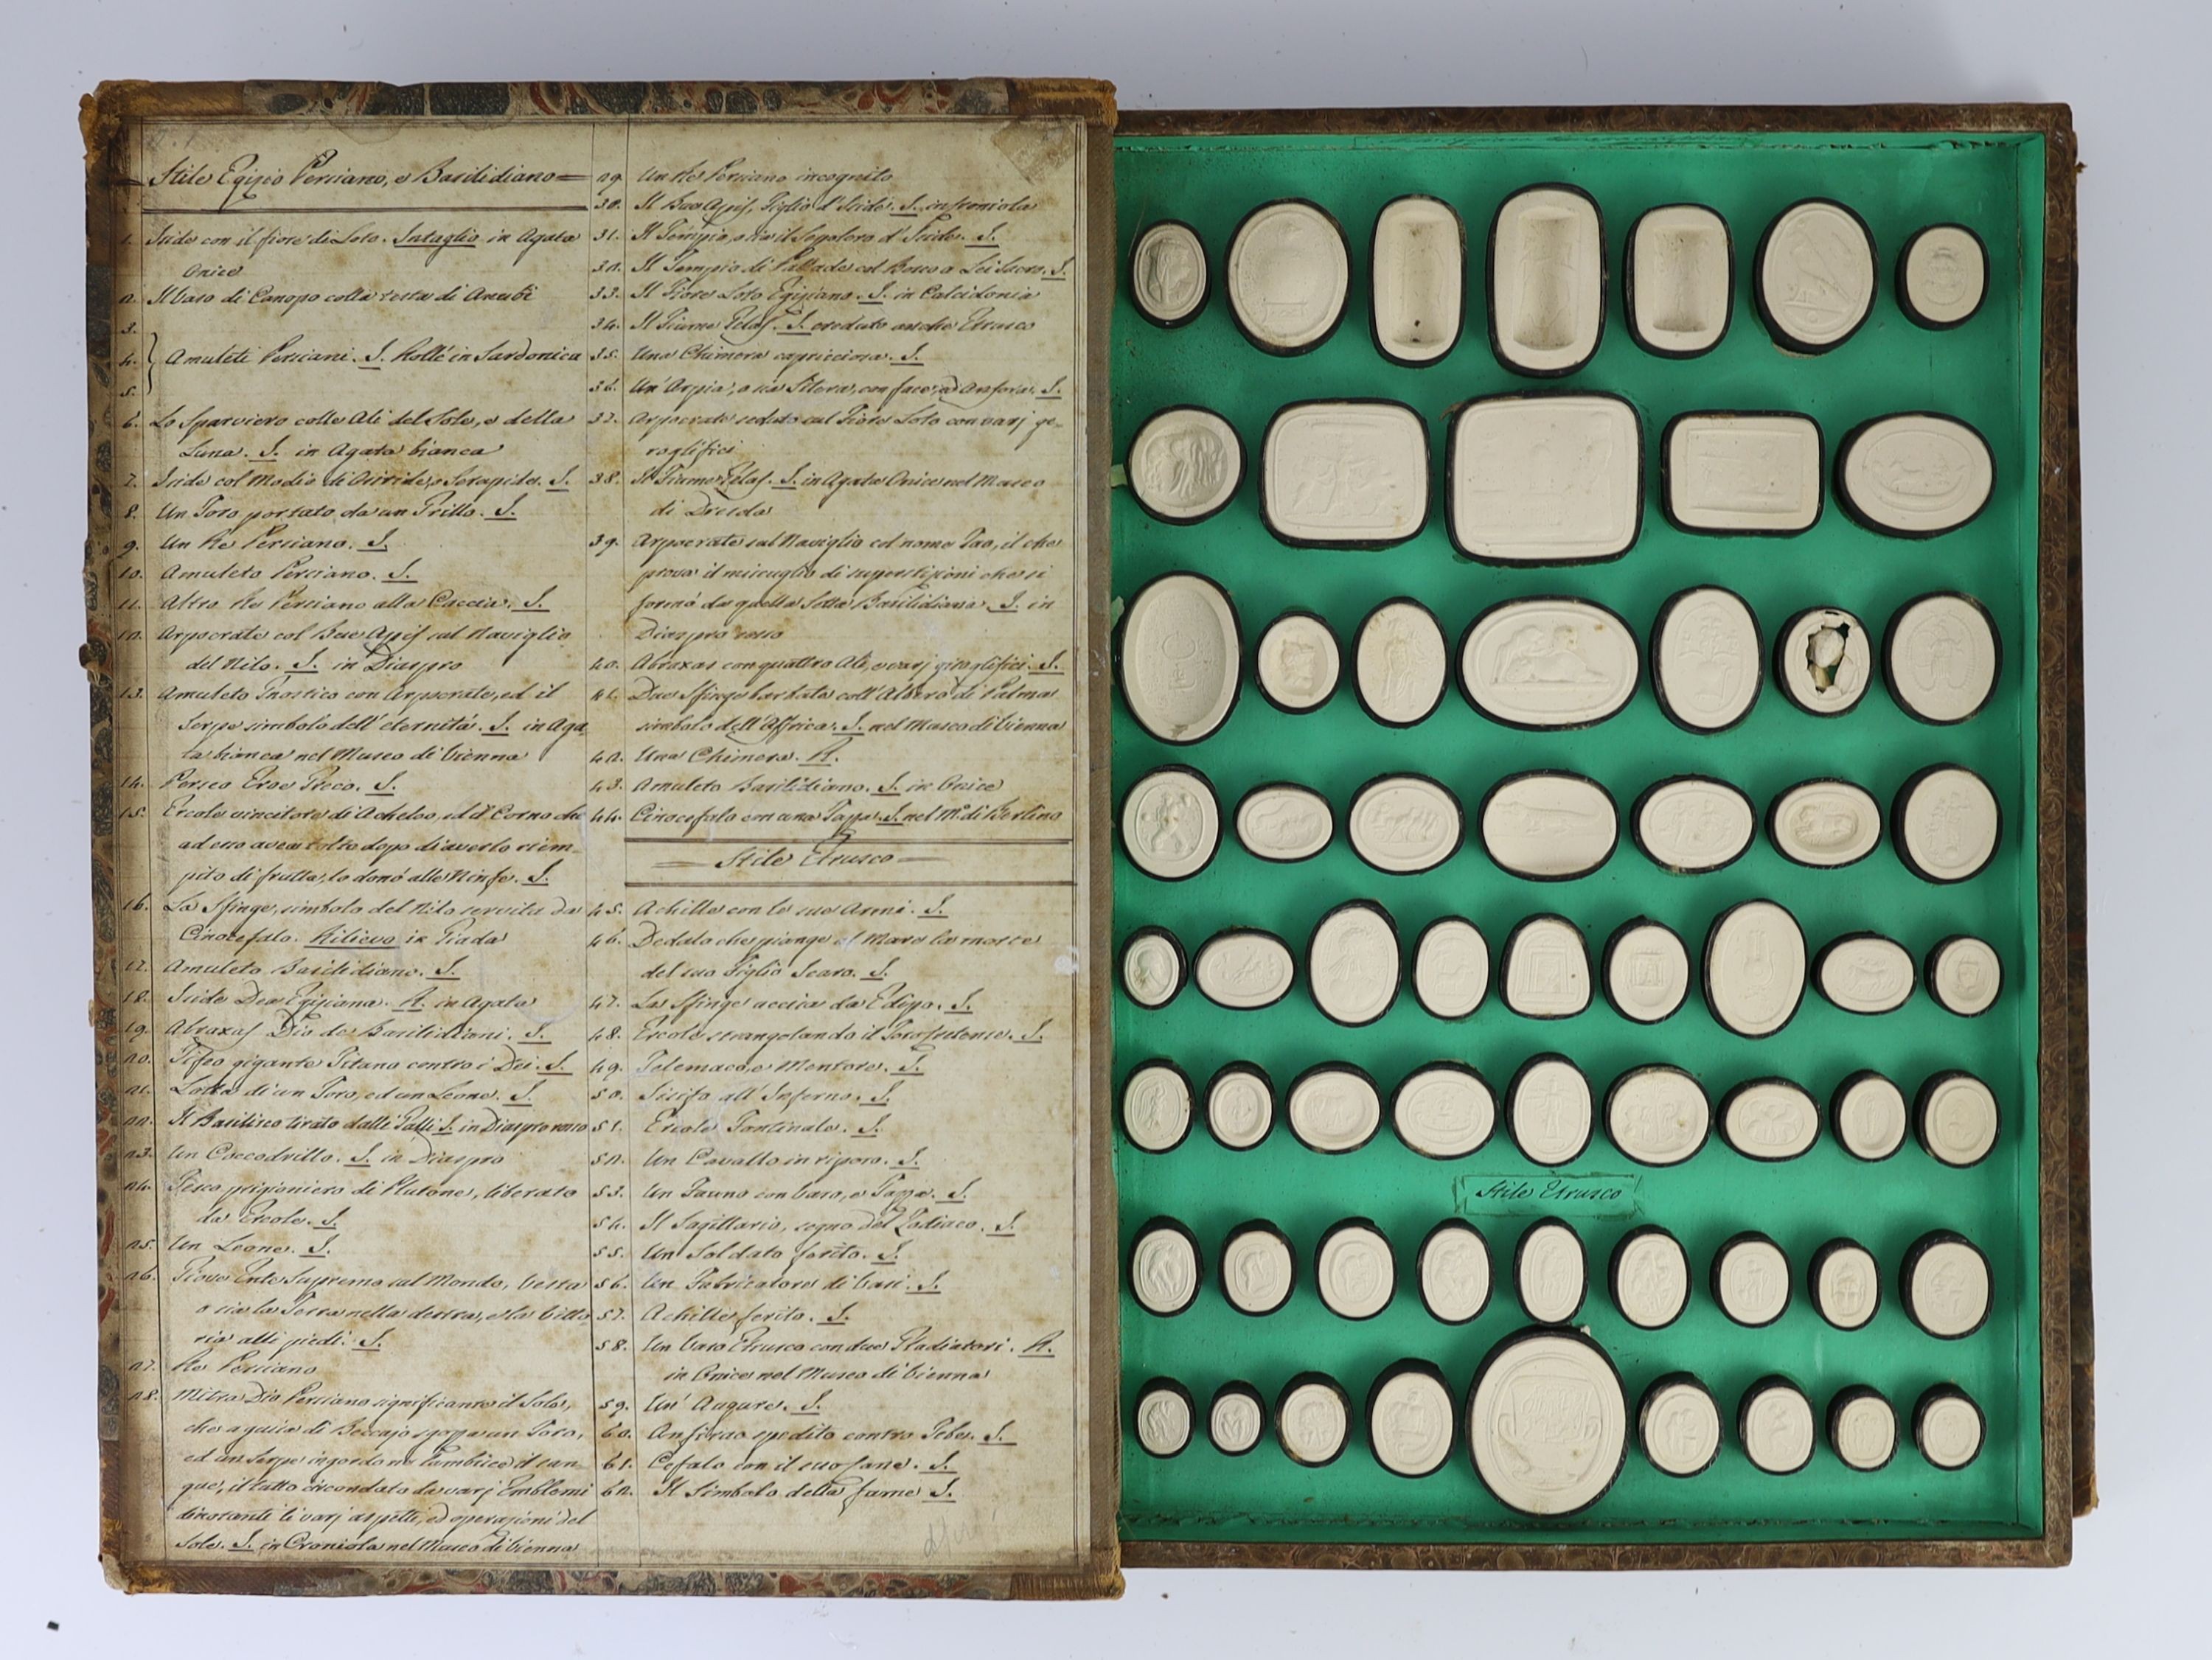 Stile Egizio Persiano, e Basilidiano
1. Iside con il fiore di Loto. Intaglio in Agata
Onice
2. Il Vaso di Canopo colla testa di Anubi
3.
4. Amuleti Persiani. I. Rollé in Sardonica
5.
6. Lo Sparviero colle Ali del Sole, e della
Luna. I. in Agata bianca
7. Iside col Modio di Osiride, o Serapide. I.
8. Un Toro portato da un Grillo. I.
9. Un Re Persiano. I.
10. Amuleto Persiano. I.
11. Altro Re Persiano alla Caccia. I.
12. Arpocrate col Bue Apis sul Naviglio
del Nilo. I. in Diaspro
13. Amuleto Gnostico con Arpocrate, ed il
Serpe simbolo dell'eternità. I. in Aga
ta bianca nel Museo di Vienna
14. Perseo Eroe Greco. I.
15. Ercole vincitore di Acheloo, ed il Corno che
ad esso avea tolto dopo di averlo riem-
pito di frutta, lo donò alle Ninfe. I.
16. La Sfinge, simbolo del Nilo servita da
Cinocefalo. Rilievo in Giada
17. Amuleto Basilidiano. I.
18. Iside Dea Egiziana. R. in Agata
19. Abraxas Dio de' Basilidiani. I.
20. Tifeo gigante Titano contro i Dei. I.
21. Lotta di un Toro, ed un Leone. I.
22. Il Basilisco tirato dalli Galli I. in Diaspro rosso
23. Un Coccodrillo. I. in Diaspro
24. Teseo prigioniero di Plutone, liberato
da Ercole. I.
25. Un Leone. I.
26. Giove Ente Supremo sul Mondo, Vesta
o sia la Terra nella destra, e la Vitto
ria alli piedi. I.
27. Re Persiano
28. Mitra Dio Persiano significante il Sole,
che a guisa di Beccajo sgozza un Toro,
ed un Serpe ingordo ne lambisce il san-
gue, il tutto circondato da varj Emblemi
dinotanti li varj aspetti, ed operazioni del
Sole. I. in Corniola nel Museo di Vienna
29. Un Re Persiano incognito
30. Il Bue Apis, Figlio d'Iside. I. in Corniola
31. Il Tempio, o sia il Sepolcro d'Iside. I.
32. Il Tempio di Pallade col Bosco a Lei Sacro. I.
33. Il Fiore Loto Egiziano. I. in Calcidonia
34. Il Fiume Gelas. I. creduto anche Etrusco
35. Una Chimera capricciosa. I.
36. Un'Arpia, o sia Sirena, con face, ed Anfora. I.
37. Arpocrate seduto sul Fiore Loto con varj ge-
roglifici
38. Il Fiume Gelas. I. in Agata Onice nel Museo
di Dresda
39. Arpocrate sul Naviglio col nome Jao, il che
prova il miscuglio di superstizioni che si
formò da quella Setta Basilidiana. I. in
Diaspro rosso
40. Abraxas con quattro Ali, e varj giroglifici. I.
41. Due Sfinge barbate coll'Albero di Palma
simbolo dell'Affrica. I. nel Museo di Vienna
42. Una Chimera. R.
43. Amuleto Basilidiano. I. in Onice
44. Cinocefalo con una Tazza. I. nel M.º di Berlino
Stile Etrusco
45. Achille con le sue Armi. I.
46. Dedalo che piange al Mare la morte
del suo Figlio Icaro. I.
47. La Sfinge uccisa da Edipo. I.
48. Ercole strangolando il Toro fretense. I.
49. Telemaco, e Mentore. I.
50. Sisifo all'Inferno. I.
51. Ercole Fontinale. I.
52. Un Cavallo in riposo. I.
53. Un Fauno con Vaso, e Tazza. I.
54. Il Sagittario, segno del Zodiaco. I.
55. Un Soldato ferito. I.
56. Un Fabricatore di Vasi. I.
57. Achille ferito. I.
58. Un Vaso Etrusco con due Gladiatori. R.
in Onice nel Museo di Vienna
59. Un'Augure. I.
60. Anfirao spedito contro Tebe. I.
61. Cefalo con il suo Cane. I.
62. Il Simbolo della fame I.
Stile Etrusco